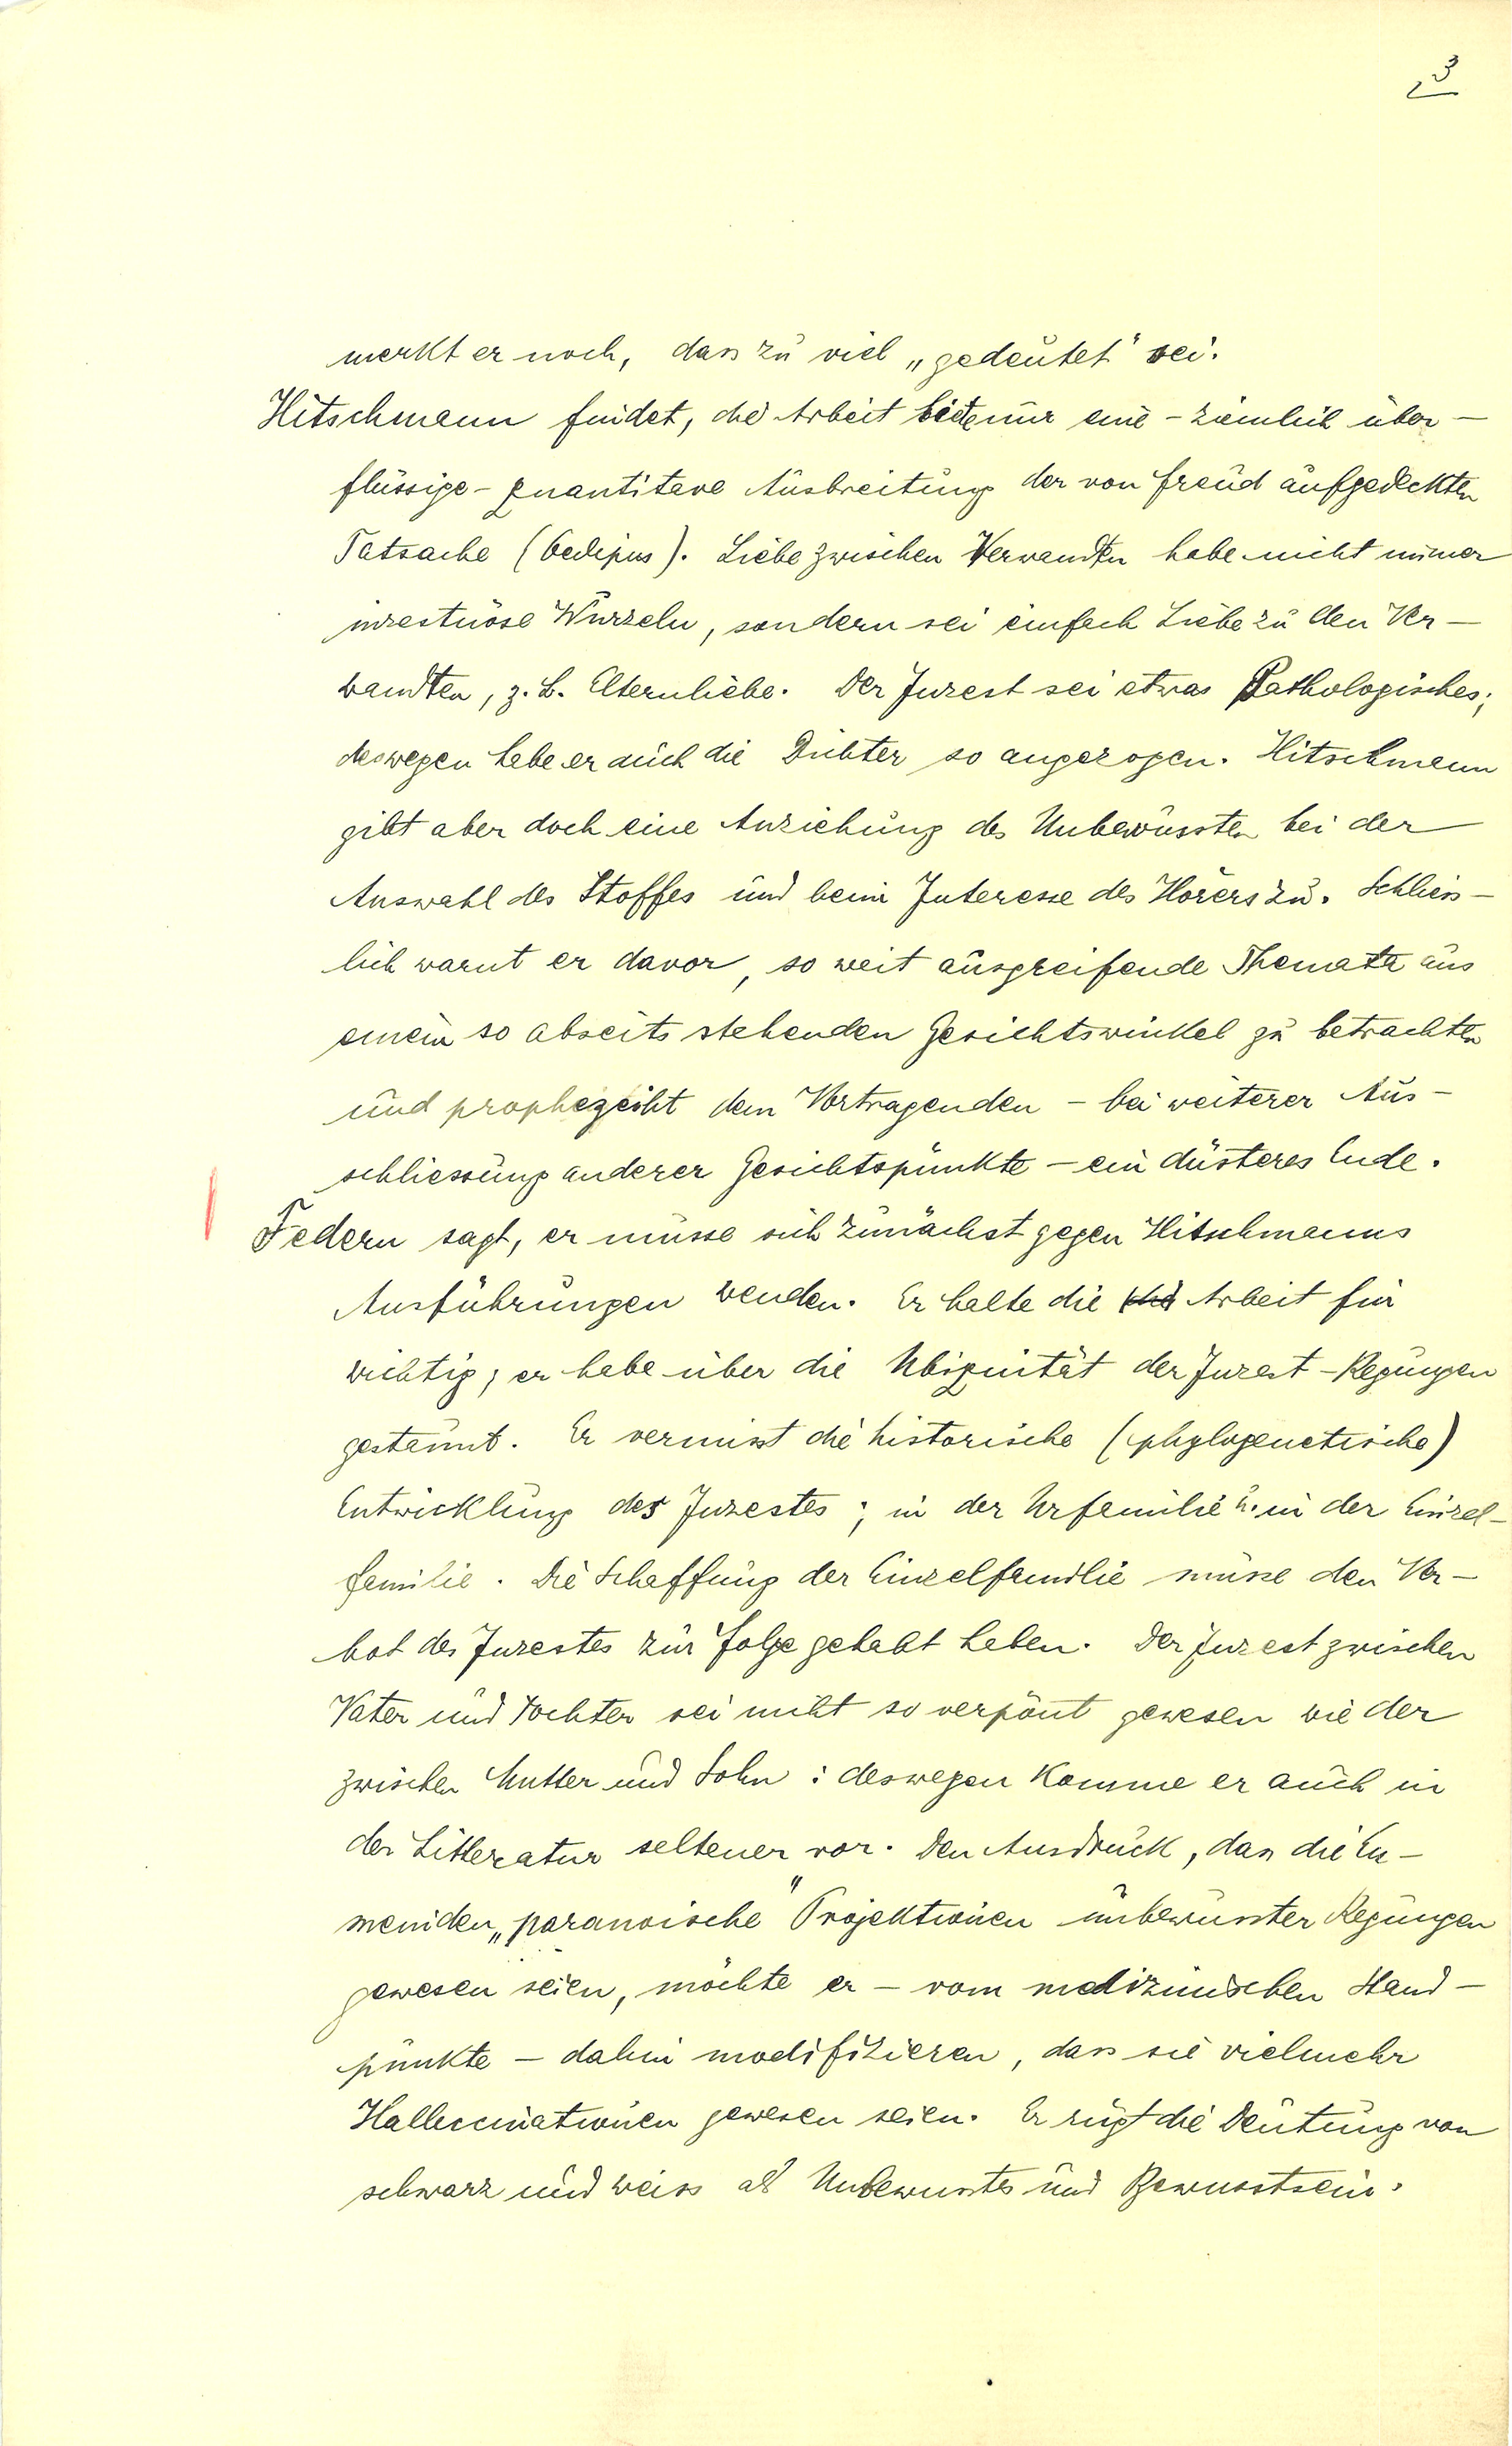 3
merkt er noch, dass zu viel „gedeutet" sei.
Hitschmann findet, die Arbeit biete nur eine – ziemlich über-
flüssige – quantitave Ausbreitung der von Freud aufgedeckten
Tatsache (Oedipus). Liebe zwischen Verwandten habe nicht immer
inzestuöse Wurzeln, sondern sei einfach Liebe zu den Ver-
wandten, z. B. Elternliebe. Der Inzest sei etwas Pathologisches;
deswegen habe er auch die Dichter so angezogen. Hitschmann
gibt aber doch eine Anziehung des Unbewussten bei der
Auswahl des Stoffes und beim Interesse des Hörers zu. Schliess-
lich warnt er davor, so weit ausgreifende Themata aus
einem so abseits stehenden Gesichtswinkel zu betrachten
und prophezeiht dem Vortragenden – bei weiterer Aus-
schliessung anderer Gesichtspunkte – ein düsteres Ende.
Federn sagt, er müsse sich zunächst gegen Hitschmanns
Ausführungen wenden. Er halte die Arbeit für
wichtig; er habe über die Ubiquität der Inzest-Regungen
gestaunt. Er vermisst die historische (phylogenetische)
Entwicklung des Inzestes; in der Urfamilie u. in der Einzel-
familie. Die Schaffung der Einzelfamilie müsse den Ver-
bot des Inzestes zur Folge gehabt haben. Der Inzest zwischen
Vater und Tochter sei nicht so verpönt gewesen wie der
zwischen Mutter und Sohn: deswegen komme er auch in
der Litteratur seltener vor. Den Ausdruck, dass die Eu-
meniden „paranoische" Projektionen unbewusster Regungen
gewesen seien, möchte er – vom medizinischen Stand-
punkte – dahin modifizieren, dass sie vielmehr
Halluccinationen gewesen seien. Er rügt die Deutung von
schwarz und weiss als Unbewusstes und Bewusstsein.